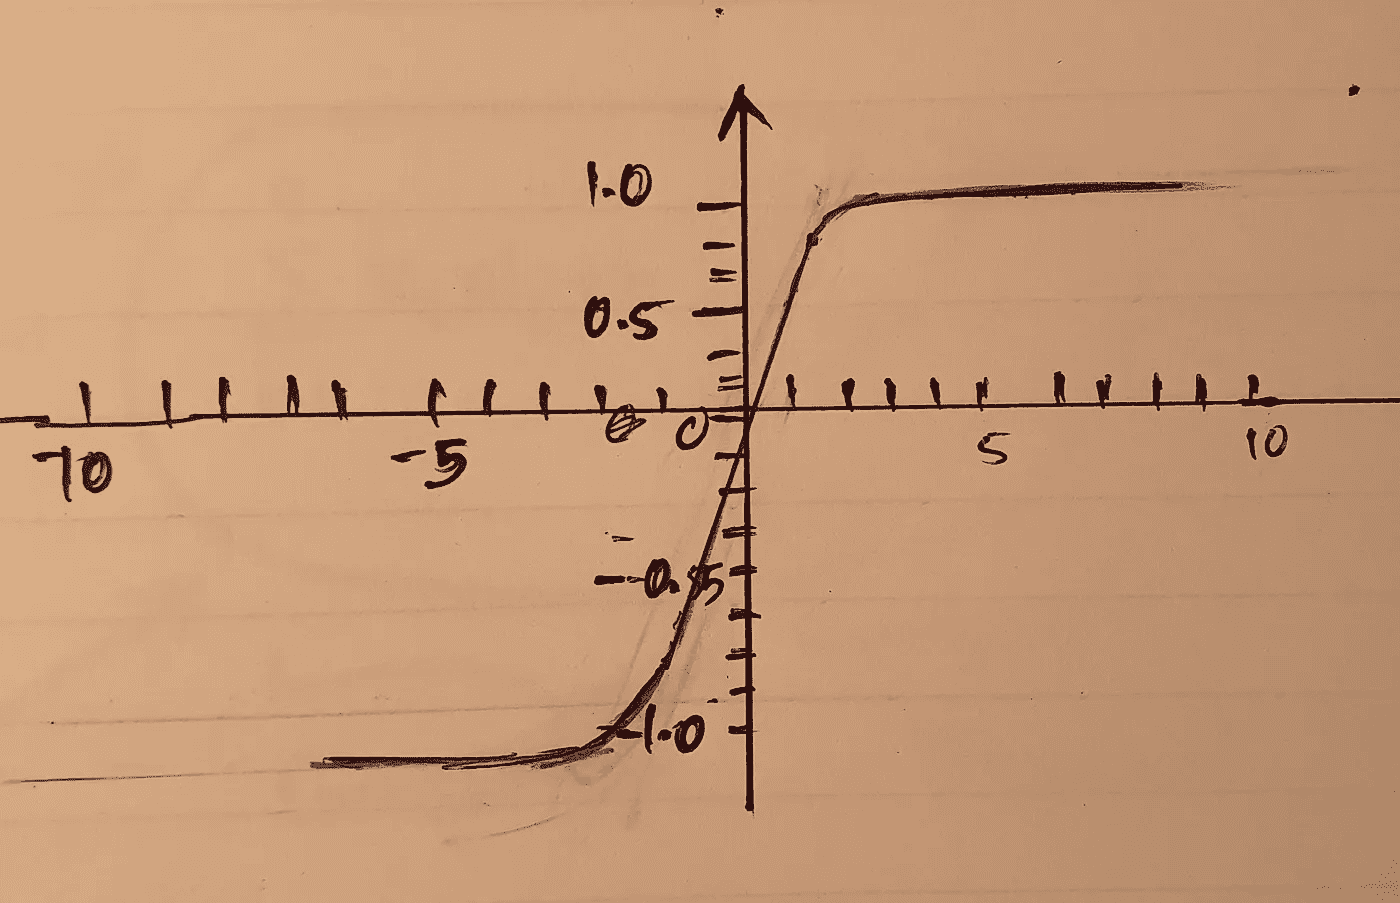 1.0
0.5
0
-10 -5 5 10
-0.5
-1.0